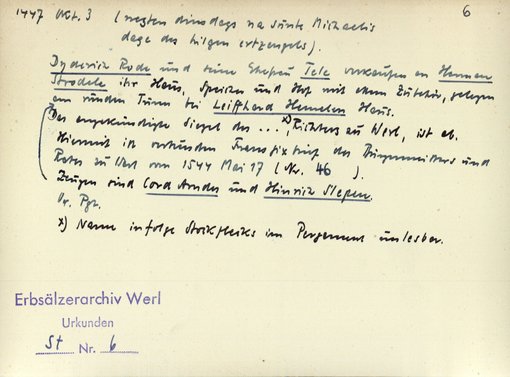 6
1447 Okt. 3 (negsten dinsdags na sunte Michaelis
dage des hilgen ertzengels).
Dyderich Rode und seine Ehefrau Tele verkaufen an Herman
Strodele ihr Haus, Speicher und Hof mit allem Zubehör, gelegen
am runden Turm bei Leiffhard Hemelen Haus.
Das angekündigte Siegel des ... x), Richters zu Werl, ist ab.
Hiermit ist verbunden Transfixbrief des Bürgermeisters und
Rates zu Werl von 1544 Mai 17 (Nr. 46).
Zeugen sind Cord Arndes und Hinrich Slepen.
Or. Pgt.
x) Name infolge Stockflecks im Pergament unlesbar.
Erbsälzerarchiv Werl
Urkunden
St Nr. 6